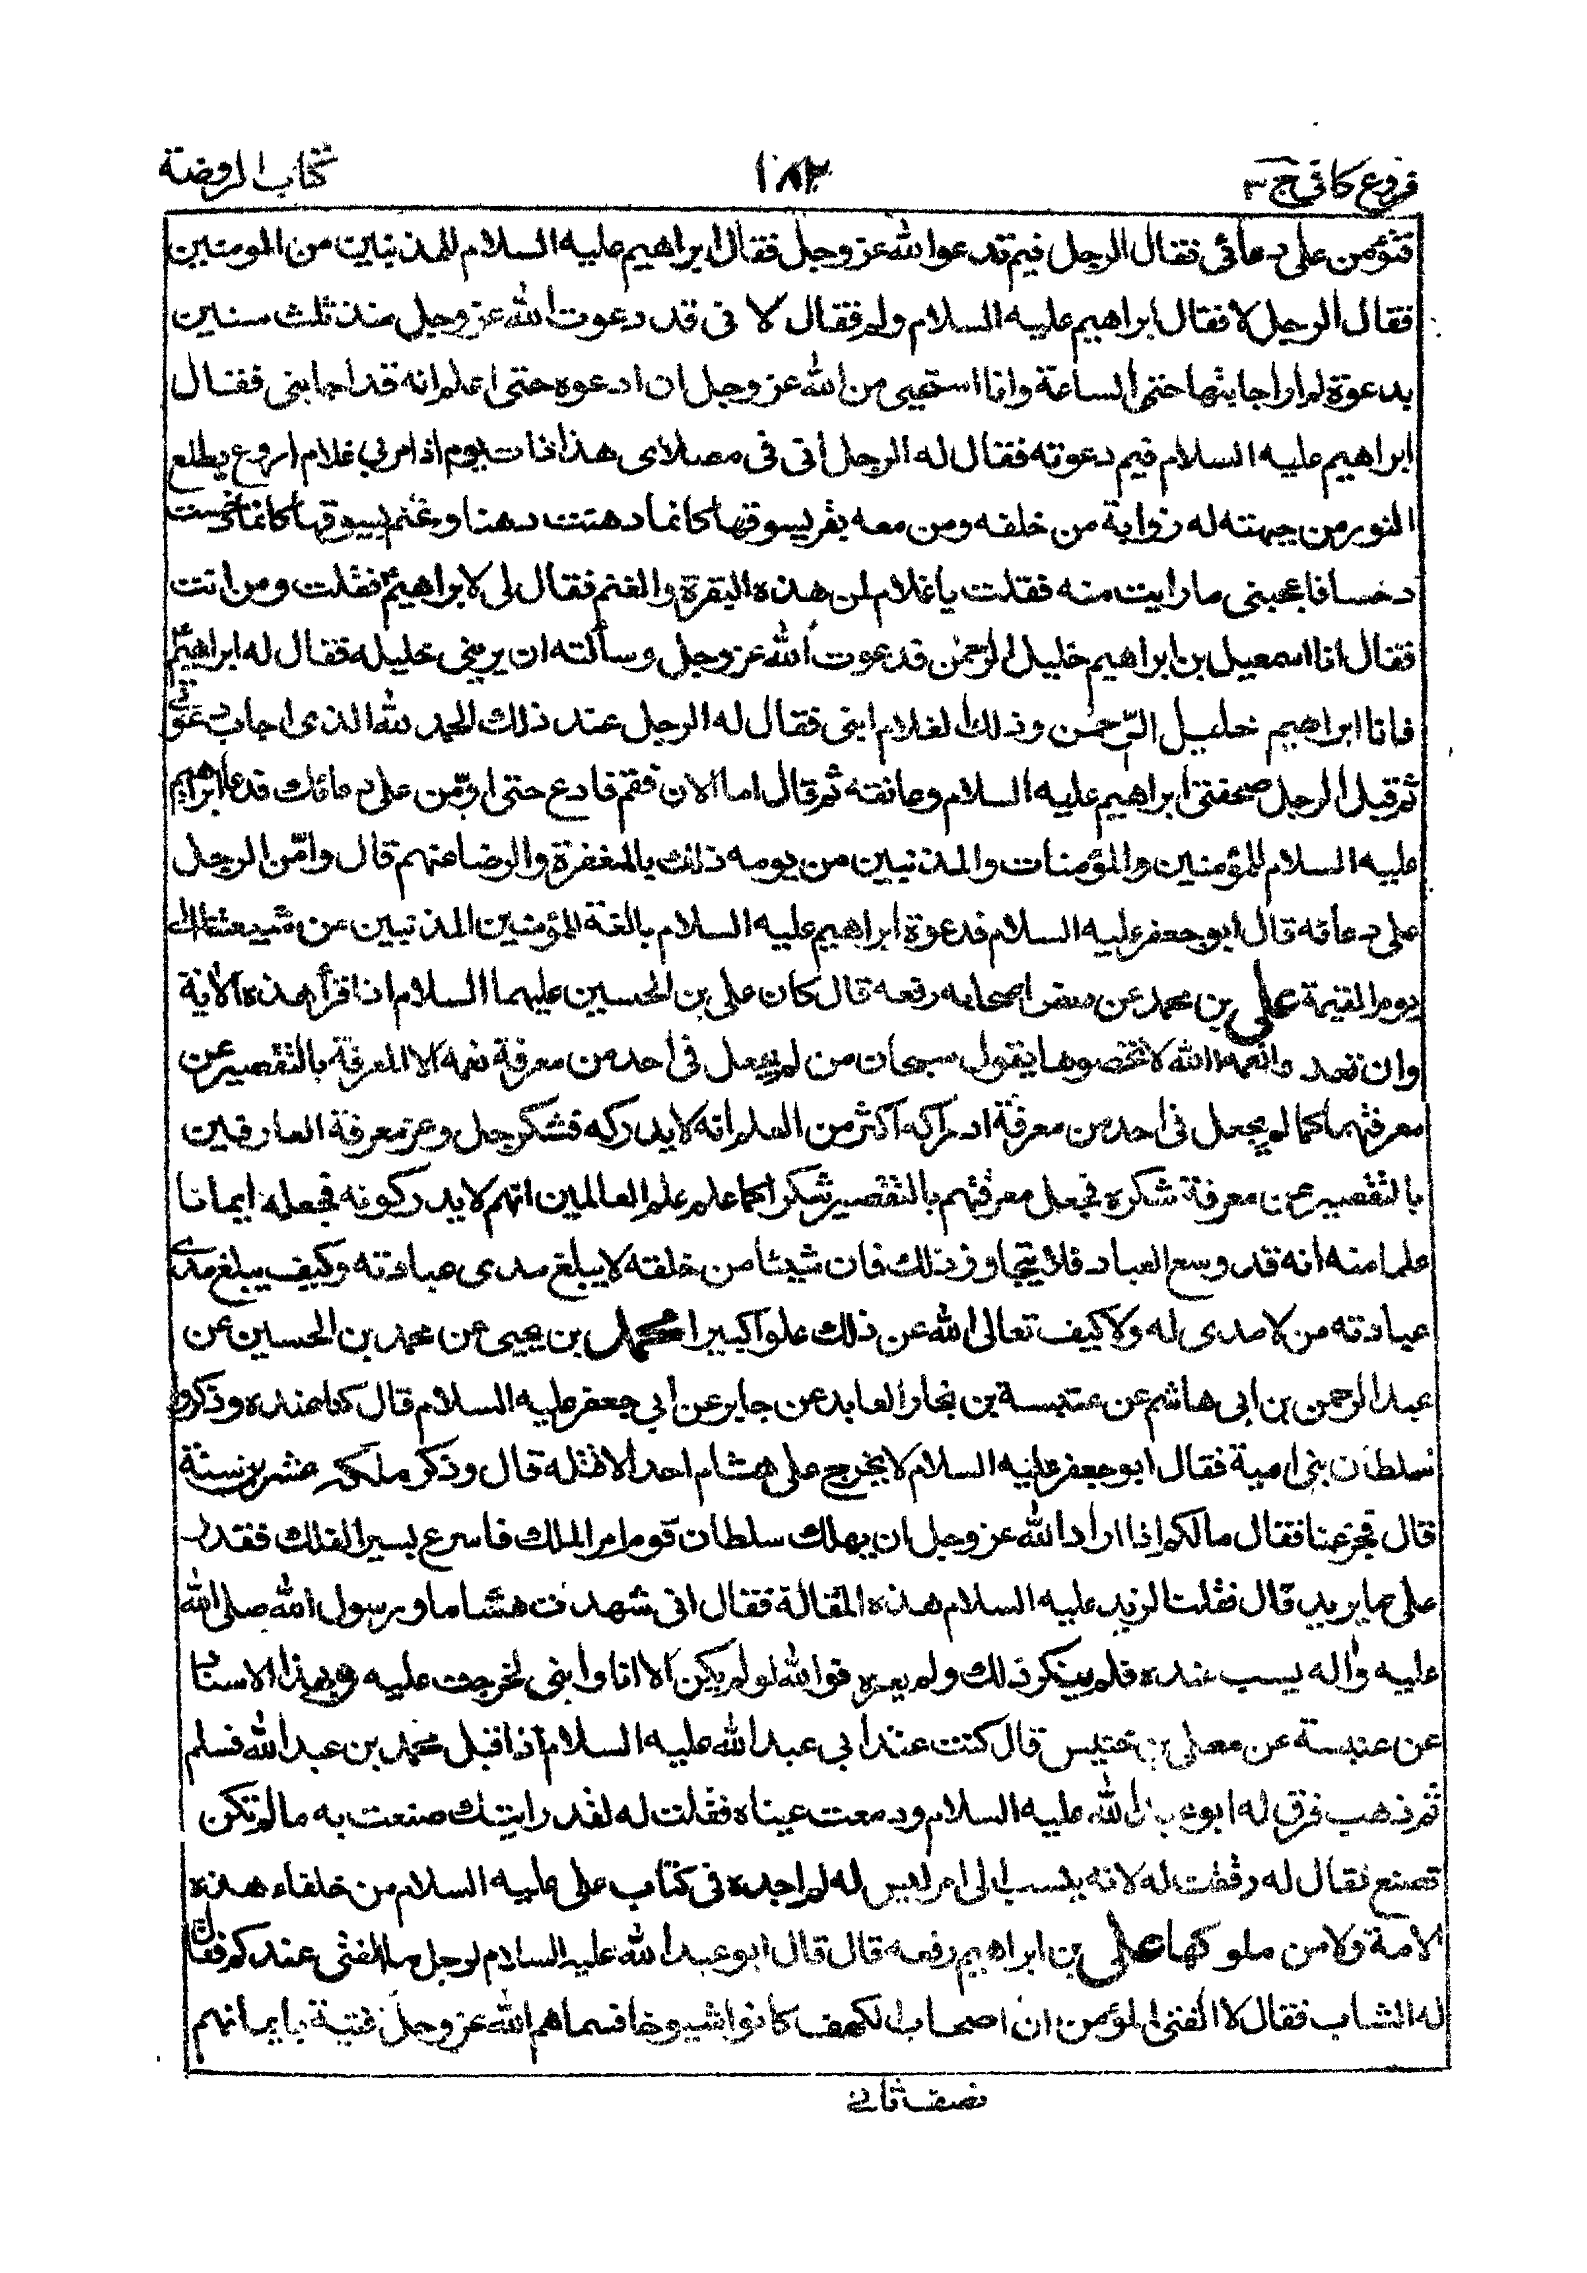 فروع كافى ج ٣
١٨٢
كتاب الروضة
فتؤمن على دعائى فقال الرجل فيم تدعو الله عز وجل فقال ابراهيم عليه السلام للمذنبين من المومنين
فقال الرجل لا فقال ابراهيم عليه السلام ولم فقال لانى قد دعوت الله عز وجل منذ ثلث سنين
بدعوة لم ار اجابتها حتى الساعة وانا استحيى من الله عز وجل ان ادعوه حتى اعلم انه قد اجابنى فقال
ابراهيم عليه السلام فيم دعوته فقال له الرجل انى فى مصلاى هذا ذات يوم اذا مر بي غلام اروع يطلع
النور من جبهته له ذوابة من خلفه ومن معه بقر يسوقها كانما دهنت دهنا وغنم يسوقها كانما دخست
دخسا فاعجبنى ما رايت منه فقلت يا غلام لمن هذه البقرة والغنم فقال لى لابراهيم فقلت ومن انت
فقال انا اسمعيل بن ابراهيم خليل الرحمن فدعوت الله عز وجل وسالته ان يرينى خليله فقال له ابراهيم
فانا ابراهيم خليل الرحمن وذلك الغلام ابنى فقال له الرجل عند ذلك الحمد لله الذى اجاب دعوتى
ثم قبل الرجل صفحتى ابراهيم عليه السلام وعانقه ثم قال اما الان فقم فادع حتى اؤمن على دعائك فدعا ابراهيم
عليه السلام للمؤمنين والمؤمنات والمذنبين من يومه ذلك بالمغفرة والرضا عنهم قال وامن الرجل
على دعائه قال ابو جعفر عليه السلام فدعوة ابراهيم عليه السلام بالغة للمؤمنين المذنبين من شيعتنا الى
يوم القيمة على بن محمد عن بعض اصحابه رفعه قال كان على بن الحسين عليهما السلام اذا قرأ هذه الاية
وان تعدوا نعمة الله لا تحصوها يقول سبحان من لم يجعل فى احد من معرفة نعمه الا المعرفة بالتقصير عن
معرفتها كما لم يجعل فى احد من معرفة ادراكه اكثر من العلم انه لا يدركه فشكر جل وعز معرفة العارفين
بالتقصير عن معرفة شكره فجعل معرفتهم بالتقصير شكرا كما علم علم العالمين انهم لا يدركونه فجعله ايمانا
علما منه انه قد وسع العباد فلا يتجاوز ذلك فان شيئا من خلقه لا يبلغ مدى عبادته وكيف يبلغ مدى
عبادته من لا مدى له ولا كيف تعالى الله عن ذلك علوا كبيرا محمد بن يحيى عن محمد بن الحسين عن
عبد الرحمن بن ابى هاشم عن عنبسة بن بجاد العابد عن جابر عن ابي جعفر عليه السلام قال كنا عنده وذكروا
سلطان بنى امية فقال ابو جعفر عليه السلام لا يخرج على هشام احد الا قتله قال وذكر ملكه عشرين سنة
قال فجزعنا فقال مالكم اذا اراد الله عز وجل ان يهلك سلطان قوم امر الملك فاسرع بسير الفلك فقدر
على ما يريد قال فقلنا لزيد عليه السلام هذه المقالة فقال انى شهدت هشاما ورسول الله صلى الله
عليه واله يسب عنده فلم ينكر ذلك ولم يغيره فوالله لو لم يكن الا انا وابنى لخرجت عليه وبهذا الاسناد
عن عنبسة عن معلى بن خنيس قال كنت عند ابي عبد الله عليه السلام اذ اقبل محمد بن عبد الله فسلم
ثم ذهب فرق له ابو عبد الله عليه السلام ودمعت عيناه فقلت له لقد رايتك صنعت به ما لم تكن
تصنع فقال له رققت له لانه ينسب الى امر ليس له لم اجده فى كتاب على عليه السلام من خلفاء هذه
الامة ولا من ملوكها على بن ابراهيم رفعه قال قال ابو عبد الله عليه السلام لرجل ما الفتى عندكم فقال
له الشاب فقال لا الفتى المؤمن ان اصحاب الكهف كانوا شيوخا فسماهم الله عز وجل فتية بايمانهم
نصف ثانى